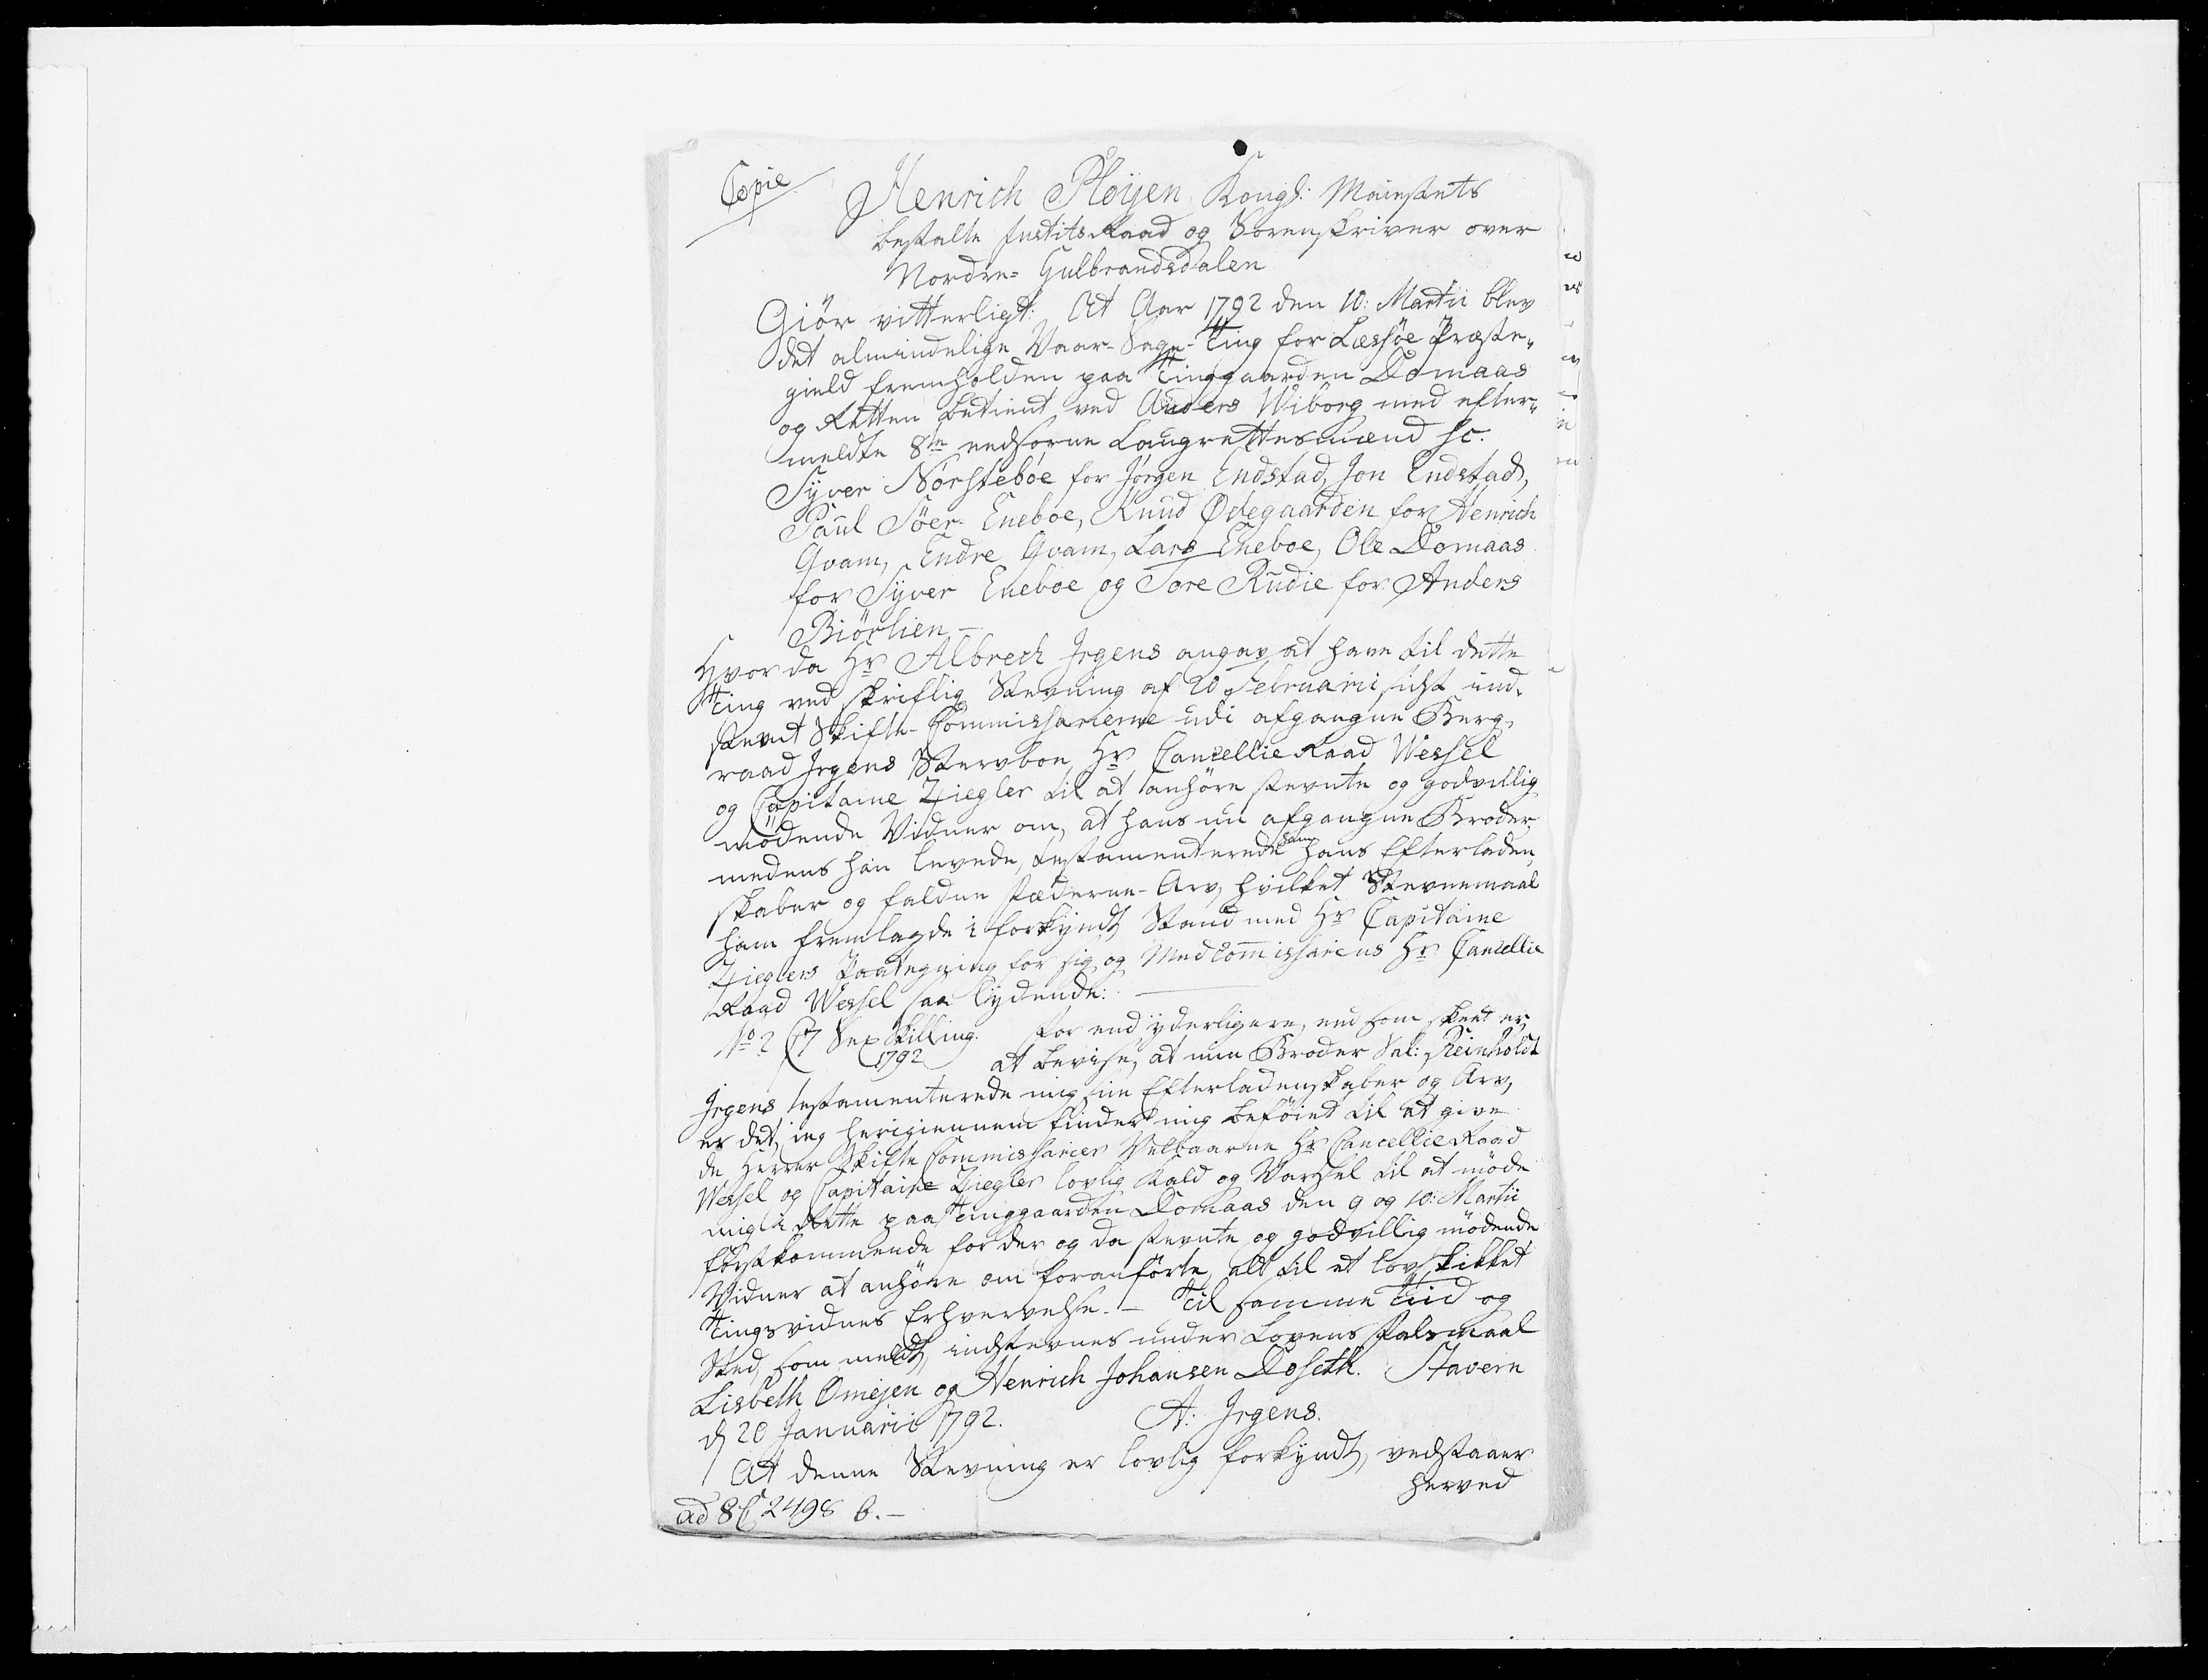 Copie
Henrich Pløyen, Kongl: Maiestets
bestalte JustitsRaad og Sorenskriver over
Nordre- Gulbrandsdalen
Giör vitterligt: At Aar 1792 den 10: Martii blev
det almindelige Vaar-Sage-Ting for Læssøe Præste-
gield fremholden paa Tinggaarden Domaas
og Retten betient ved Anders Wiborg med efter-
meldte 8te eedsorne Laugrettesmænd sc.
Syver Nörsteböe for Jörgen Endstad, Jon Endstad,
Paul Söer-Eneboe, Knud Ødegaarden for Henrich
Qvam, Endre Qvam, Lars Eneboe, Ole Domaas
for Syver Eneboe og Tore Rudie for Anders
Biörlien —
Hvor da Hr Albrech Irgens angav at have til dette
Ting ved skriftlig Stevning af 20 Februarii sidst ind-
stevnt Skifte-Commissarierne udi afgangne Berg-
raad Irgens Stervboe, Hr CancellieRaad Wessel
og Capitaine Ziegler til at anhöre stevnte og godvillig
mödende Vidner om, at hans nu afgangne Broder,
medens han levede, testamenterede ham hans Efterladen-
skaber og faldne Fæderne-Arv, hvilket Stevnemaal
ham fremlagde i forkyndt Stand med Hr Capitaine
Zieglers Paategning for sig og MedCommissarius Hr Cancellie
Raad Wessel saa lydende: —
No 2 C7 Sex Skilling. For end yderligere, end som skeet er,
1792 at bevise, at min Broder Sal: Reinholdt
Irgens testamenterede mig sine Efterladenskaber og Arv,
er det, jeg herigiennem finder mig beföiet til at give
de Herrer Skifte Commissarier Velbaarne Hr CancellieRaad
Wessel og Capitaine Ziegler lovlig Kald og Varsel til at möde
mig i Rette paa Tinggaarden Domaas den 9 og 10: Martii
förstkommende for der og da stevnte og godvillig mödende
Vidner at anhöre om foranförte, alt til et lovskikket
Tingsvidnes Erhvervelse. — Til samme Tiid og
Sted, som meldt, indstevnes under Lovens Falsmaal
Lisbeth Omejen og Henrich Johansen Doseth. Stavern
d 20 Januarii 1792. A: Irgens.
At denne Stevning er lovlig forkyndt, vedstaaer
herved
ad 8 C 2498 b. —